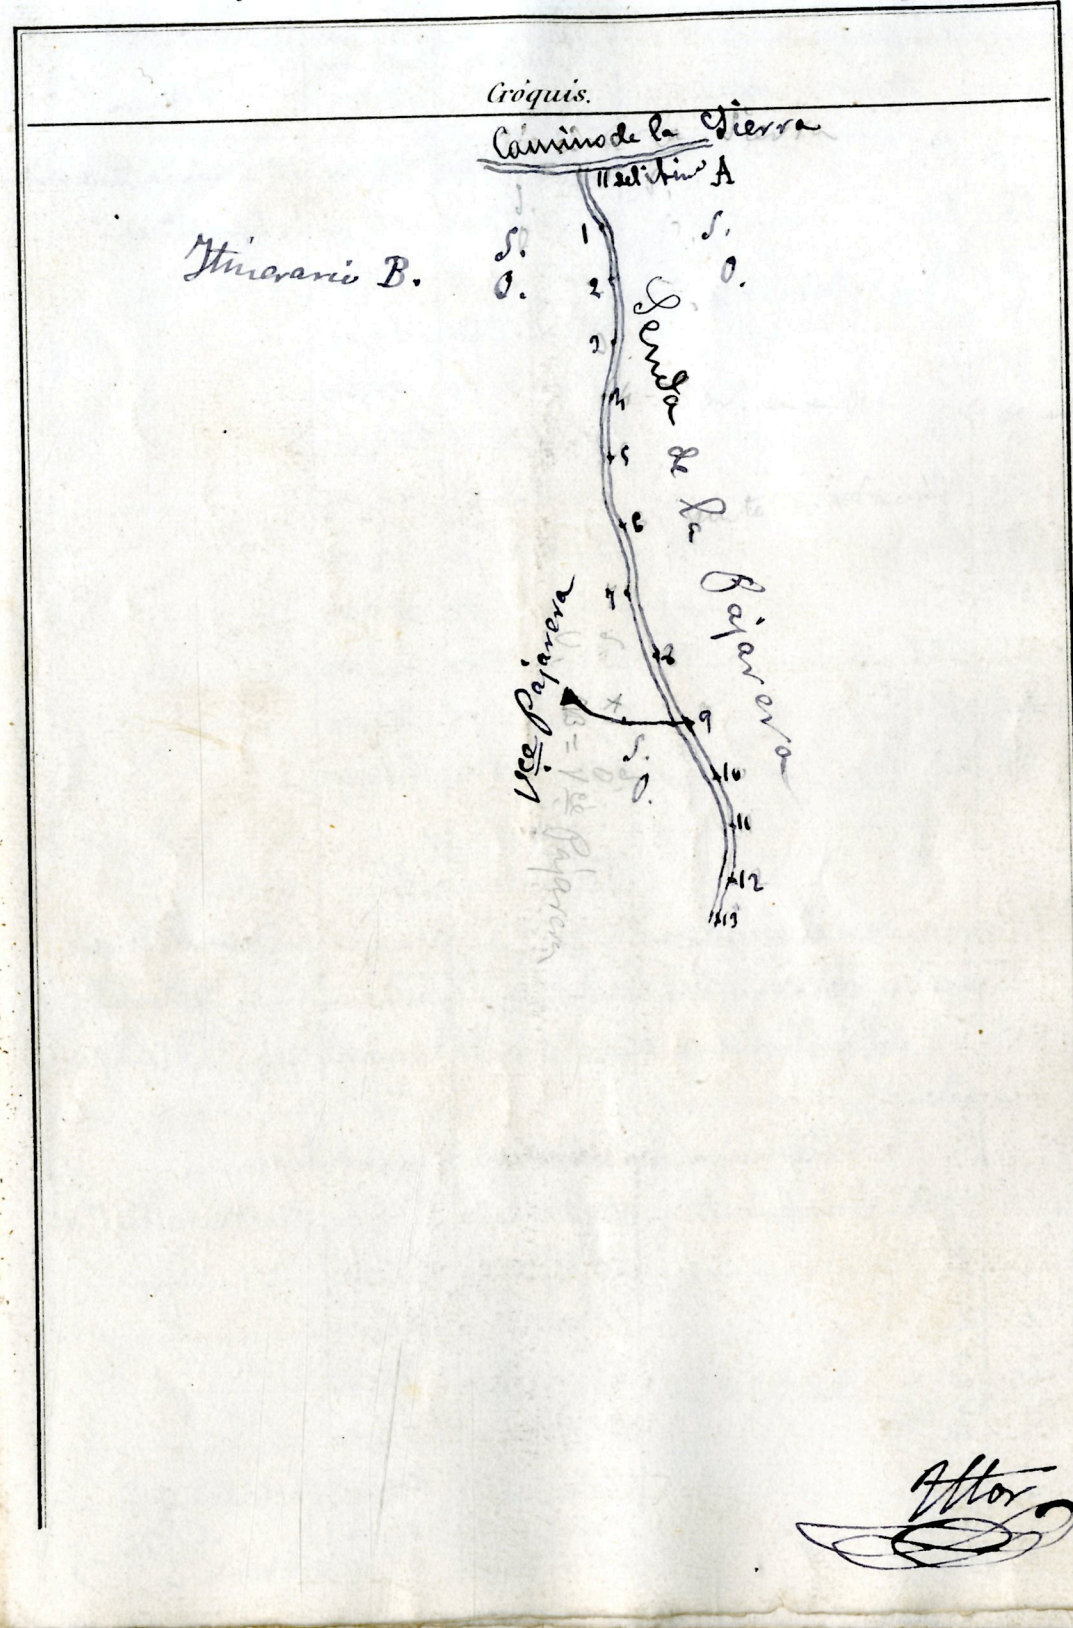 Cróquis.
Camino de la Sierra
11 del Itin.º A
Itinerario B.
S.
O.
S.
O.
1
2
3
4
5
6
7
8
9
10
11
12
13
Senda de la Pajarera
Vce Pajarera
S.
O.